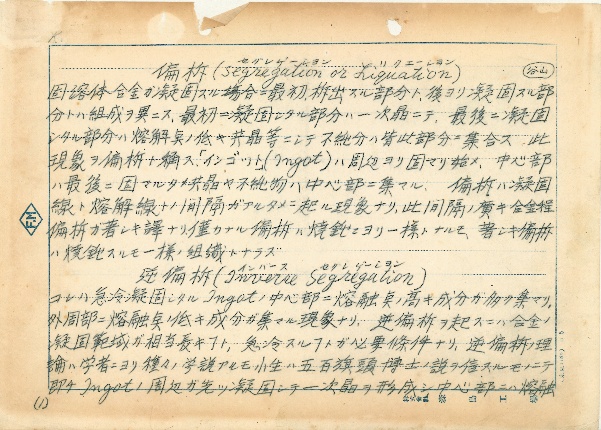 谷山
偏析 (Segregation or Liquation)
セグレゲーション リクエーション
固溶体合金ガ凝固スル場合ニ最初ニ析出スル部分ト、後ヨリ凝固スル部
分トハ組成ヲ異ニス、最初ニ凝固シタル部分ハ一次晶ニテ、最後ニ凝固
シタル部分ハ熔解点ノ低キ共晶等ニシテ不純分ハ皆此部分ニ集合ス、此
現象ヲ偏析ト稱ス、「インゴット」(Ingot)ハ周辺ヨリ固マリ始メ、中心部
ハ最後ニ固マルタメ共晶ヤ不純物ハ中心部ニ集マル、 偏析ハ凝固
線ト熔解線トノ間隔ガアルタメニ起ル現象ナリ、此間隔ノ廣キ合金程
偏析ガ著シキ譯ナリ僅カナル偏析ハ焼鈍ニヨリ一様トナルモ、著シキ偏析
ハ焼鈍スルモ一様ノ組織トナラズ
逆偏析 (Inverse Segregation)
インバース セグレゲーション
コレハ急冷凝固シタル Ingot ノ中心部ニ熔融点ノ高キ成分ガ多ク集マリ、
外周部ニ熔融点ノ低キ成分ガ集マル現象ナリ、逆偏析ヲ起スニハ合金ノ
凝固範域ガ相当長キコト、急冷スルコトガ必要條件ナリ、逆偏析ノ理
論ハ学者ニヨリ種々ノ学説アルモ小生ハ五百旗頭博士ノ説ヲ信スルモノニテ
即チ Ingot ノ周辺ガ先ヅ凝固シテ一次晶ヲ形成シ中心部ニハ熔融
(1)